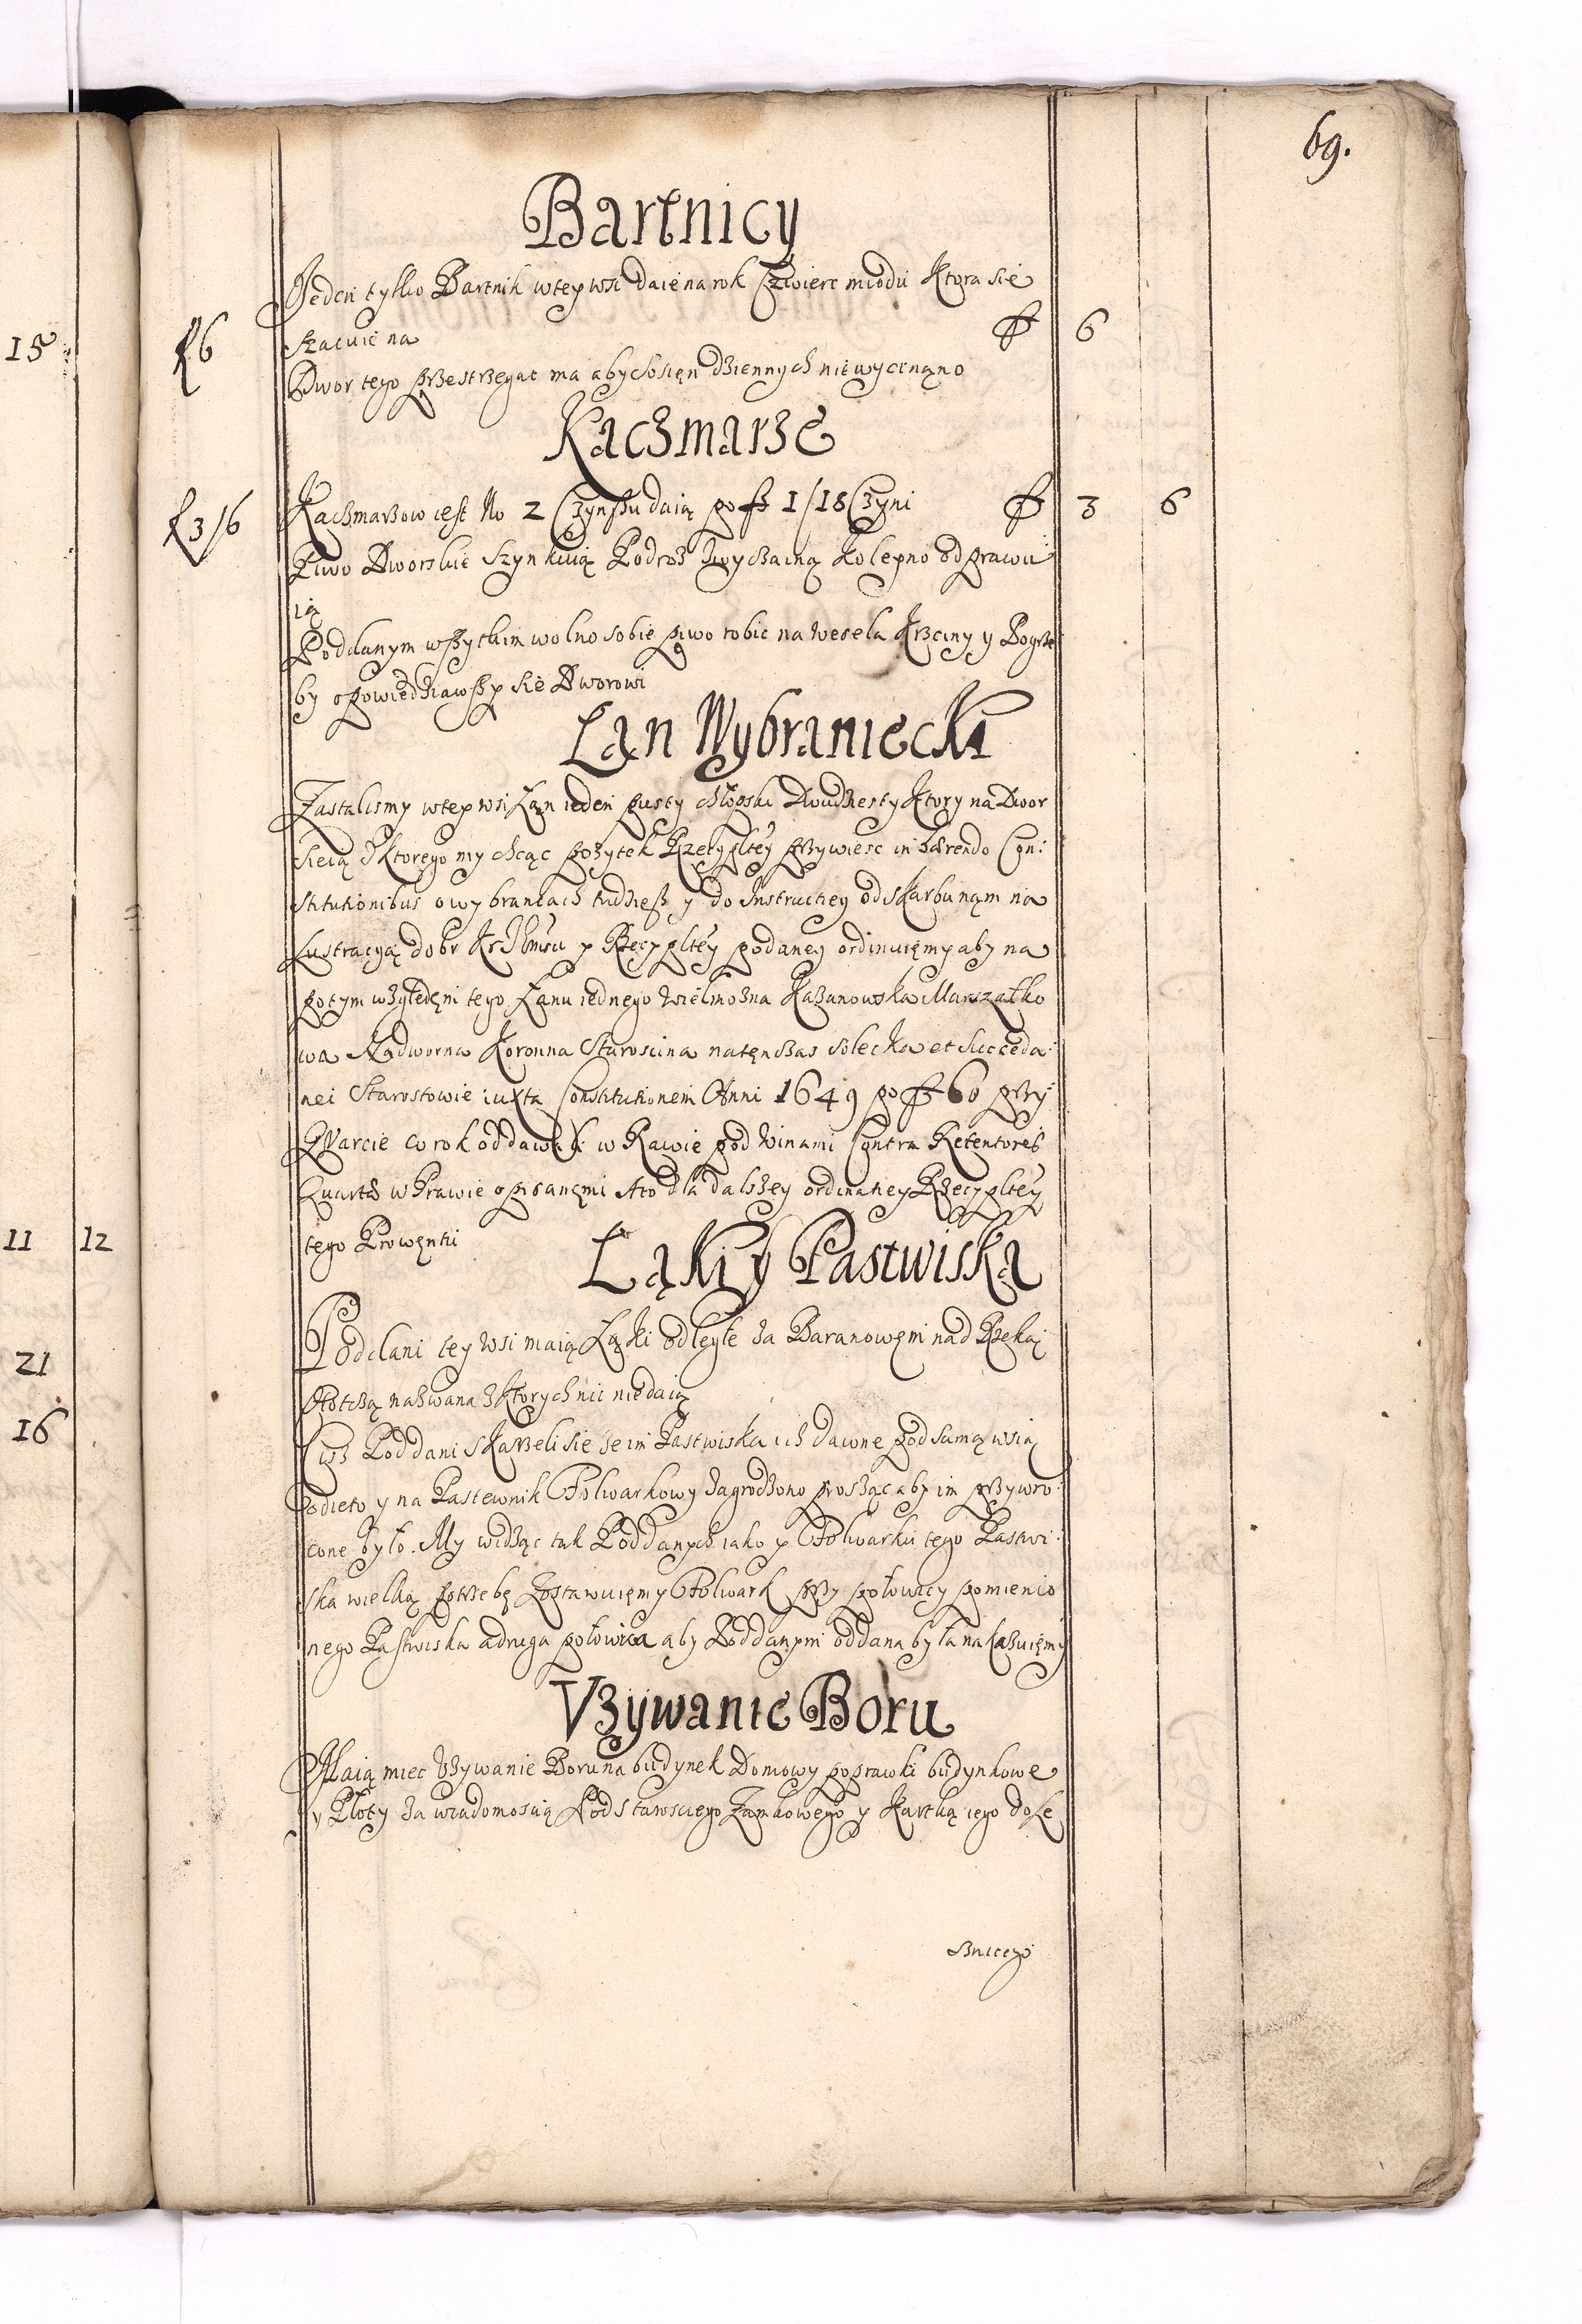 69.
Bartnicy
Jeden tylko Bartnik wtey wsi daie na rok Czwierc miodu Ktora sie
15
f 6
szacuie na ff 6
Dwor tego przestrzegac ma aby Sosięn dziennych nie wycinąno
Kaczmarze
f 3/6
Kaczmarzow iest No 2 Czynszu daią po ff 1/18 Czyni ff 3 6
Piwo Dworskie szynkuią Podroż zwyczainą Kolepno odprawu:
ią
Poddanym wszytkim wolno sobie piwo robic na wesela Krzciny y Pogrze
by opowiedziawszy sie Dworowi
Łąn Wybraniecki
Zastalismy wtey wsi Łąn ieden pusty chłopski Dwudziesty Ktory na Dwor
sieią z ktorego my chcąc pożytek Rzeczypltey przywiesc inhærendo Con:
stitutionibus o wybrancach tudziesz y do Instructiey od skarbu nąm na
Lustracyą dobr Kr JKmsci y Rzeczypltey podaney ordinuięmy aby na
potym względęm tego Łanu iednego Wielmożna Kazanowska Marszałko
wa Nądworna Koronna Staroscina natęnczas Solecka et succeda:
nei Starostowie iuxta Constitutionem Anni 1649 po ff 60 przy
Kwarcie co rok oddawali w Rawie pod winami Contra Retentores
Quartæ w Prawie opisanęmi Ato dla dalszey ordinatiey Rzeczypltey
11 12
tego Prowęntu
Łąki y Pastwiską
21
Poddani tey wsi maią Łąki odległe za Baranowęm nad Rzeką
nazwana z Ktorych nic niedaią
16
Ciż Poddani skarzeli sie że im Pastwiska ich dawne pod samą wsią
odieto y na Pastewnik Folwarkowy zagrodzono prosząc aby im przywro:
cone było. My widząc tak Poddanych iako y Folwarku tego Pastwi:
ska wielką potrzebę Zostawuięmy Folwark przy połowicy pomienio
nego Pastwiska a druga połowica aby Poddanym oddana była nakazuięmy
Vżywanie Boru
Maią miec Vżywanie Boru na budynek Domowy poprawki budynkowe
y Płoty za wiadomoscią Podstarosciego Zamkowego y Kartką iego do Le
sniczego